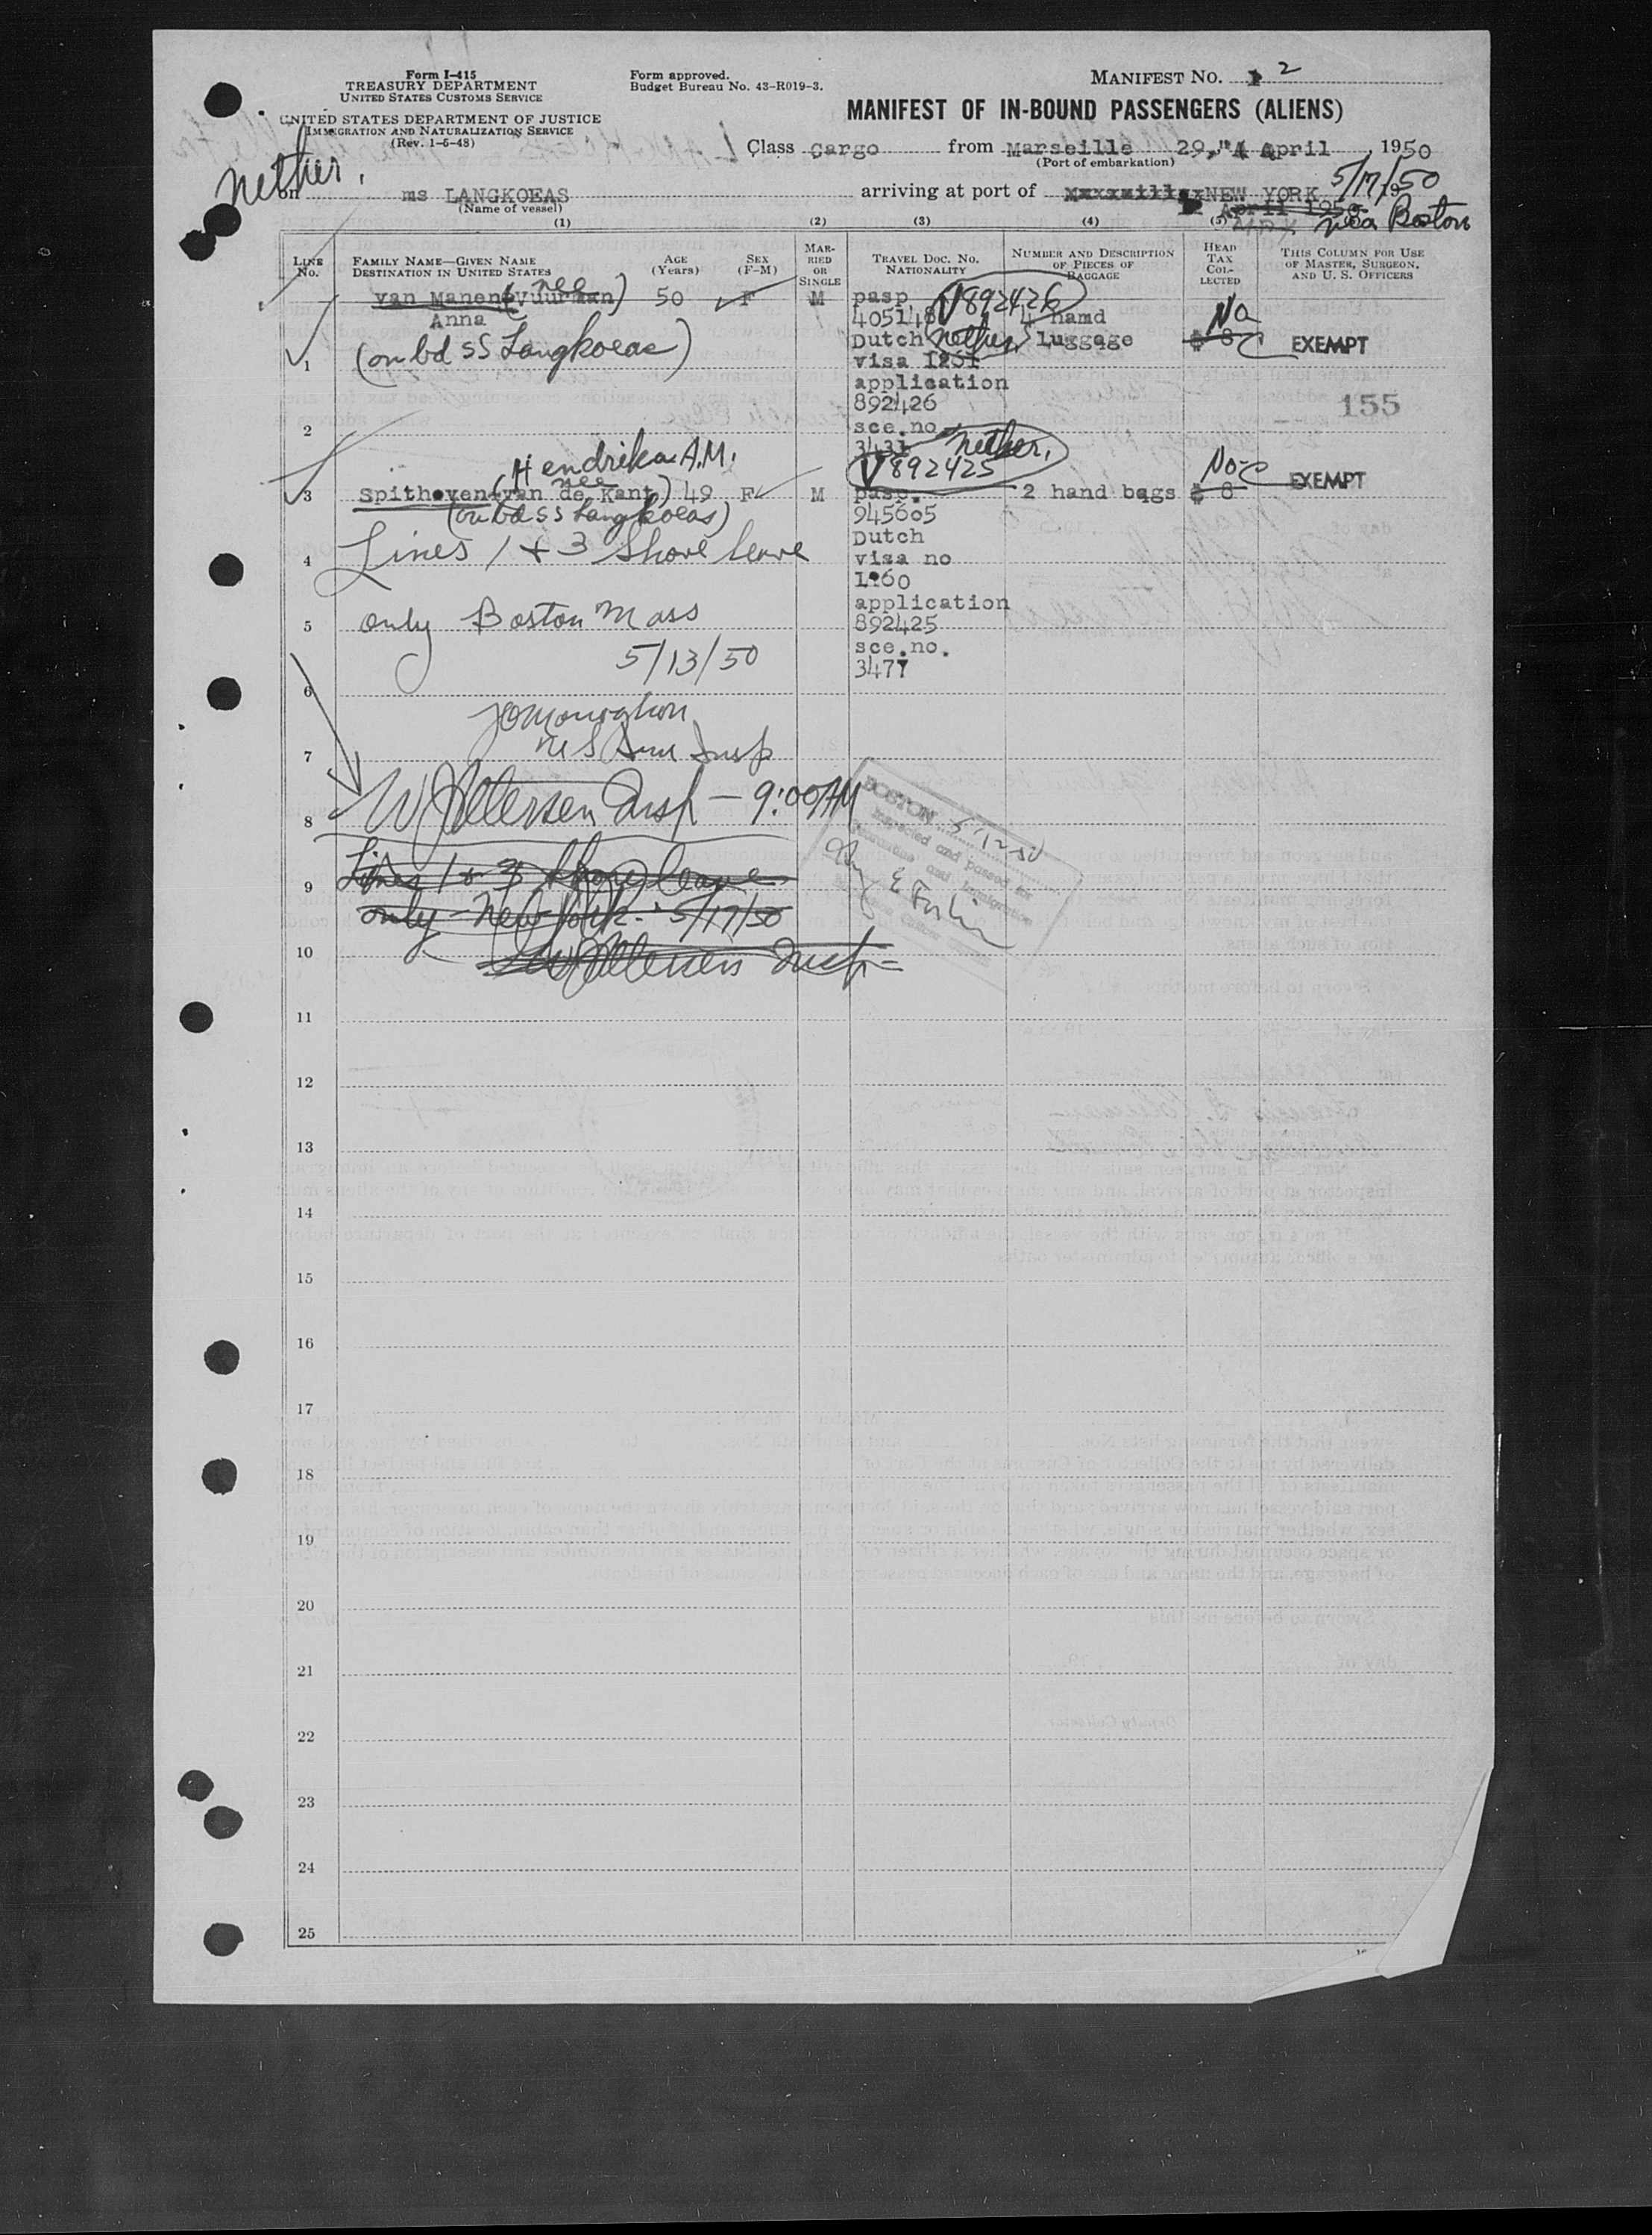 Form I-415
TREASURY DEPARTMENT
UNITED STATES CUSTOMS SERVICE
UNITED STATES DEPARTMENT OF JUSTICE
IMMIGRATION AND NATURALIZATION SERVICE
(Rev. 1-5-48)
Form approved.
Budget Bureau No. 43-R019-3.
MANIFEST No. 2
MANIFEST OF IN-BOUND PASSENGERS (ALIENS)
Class Cargo from Marseille 29, April, 1950
(Port of embarkation)
Nether.
on ms LANGKOEAS arriving at port of NEW YORK 5/17/50
(Name of vessel)
April 1950
via Boston
(1) (2) (3) (4) (5)
LINE No.
FAMILY NAME—GIVEN NAME
DESTINATION IN UNITED STATES
AGE (Years)
SEX (F-M)
MARRIED OR SINGLE
TRAVEL DOC. NO.
NATIONALITY
NUMBER AND DESCRIPTION OF PIECES OF BAGGAGE
HEAD TAX COLLECTED
THIS COLUMN FOR USE OF MASTER, SURGEON, AND U. S. OFFICERS
nee
van Manen (Vuurman) 50 F M pasp. V892426
Anna 405148 4 hamd No
(on bd SS Langkoeas) Dutch Nether. luggage $ 8 EXEMPT
1 visa 1261
application
892426 155
2 sce.no.
3431 Nether.
Hendrika A.M. V892425 No
nee
3 Spithoven (van de Kant) 49 F M pasp. 2 hand bags $ 8 EXEMPT
(on bd SS Langkoeas) 945605
Lines 1 + 3 Shore leave Dutch
4 visa no
1260
application
5 only Boston Mass 892425
sce.no.
5/13/50 3477
6
7 Insp
8 Insp — 9:00 AM
BOSTON 5-12-50
Inspected and passed for
Quarantine and Immigration
9 Lines 1 & 3 shore leave
only - New York. 5/17/50
10 Insp
11
12
13
14
15
16
17
18
19
20
21
22
23
24
25